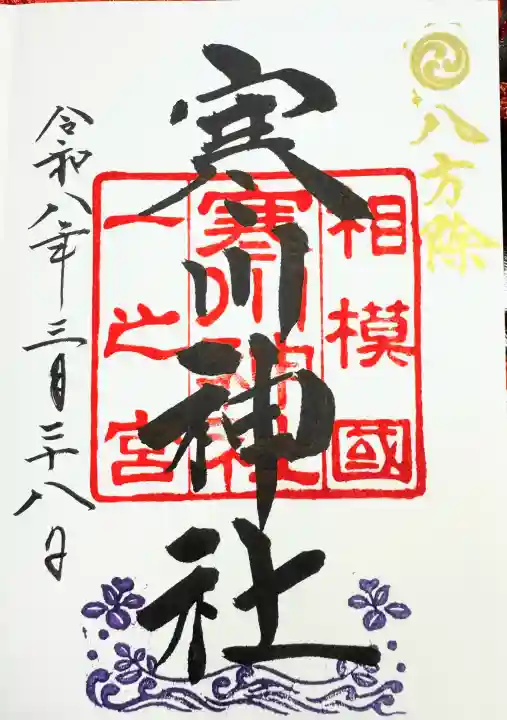 八方除
寒川神社
相模國
寒川神社
一之宮
令和八年三月二十八日